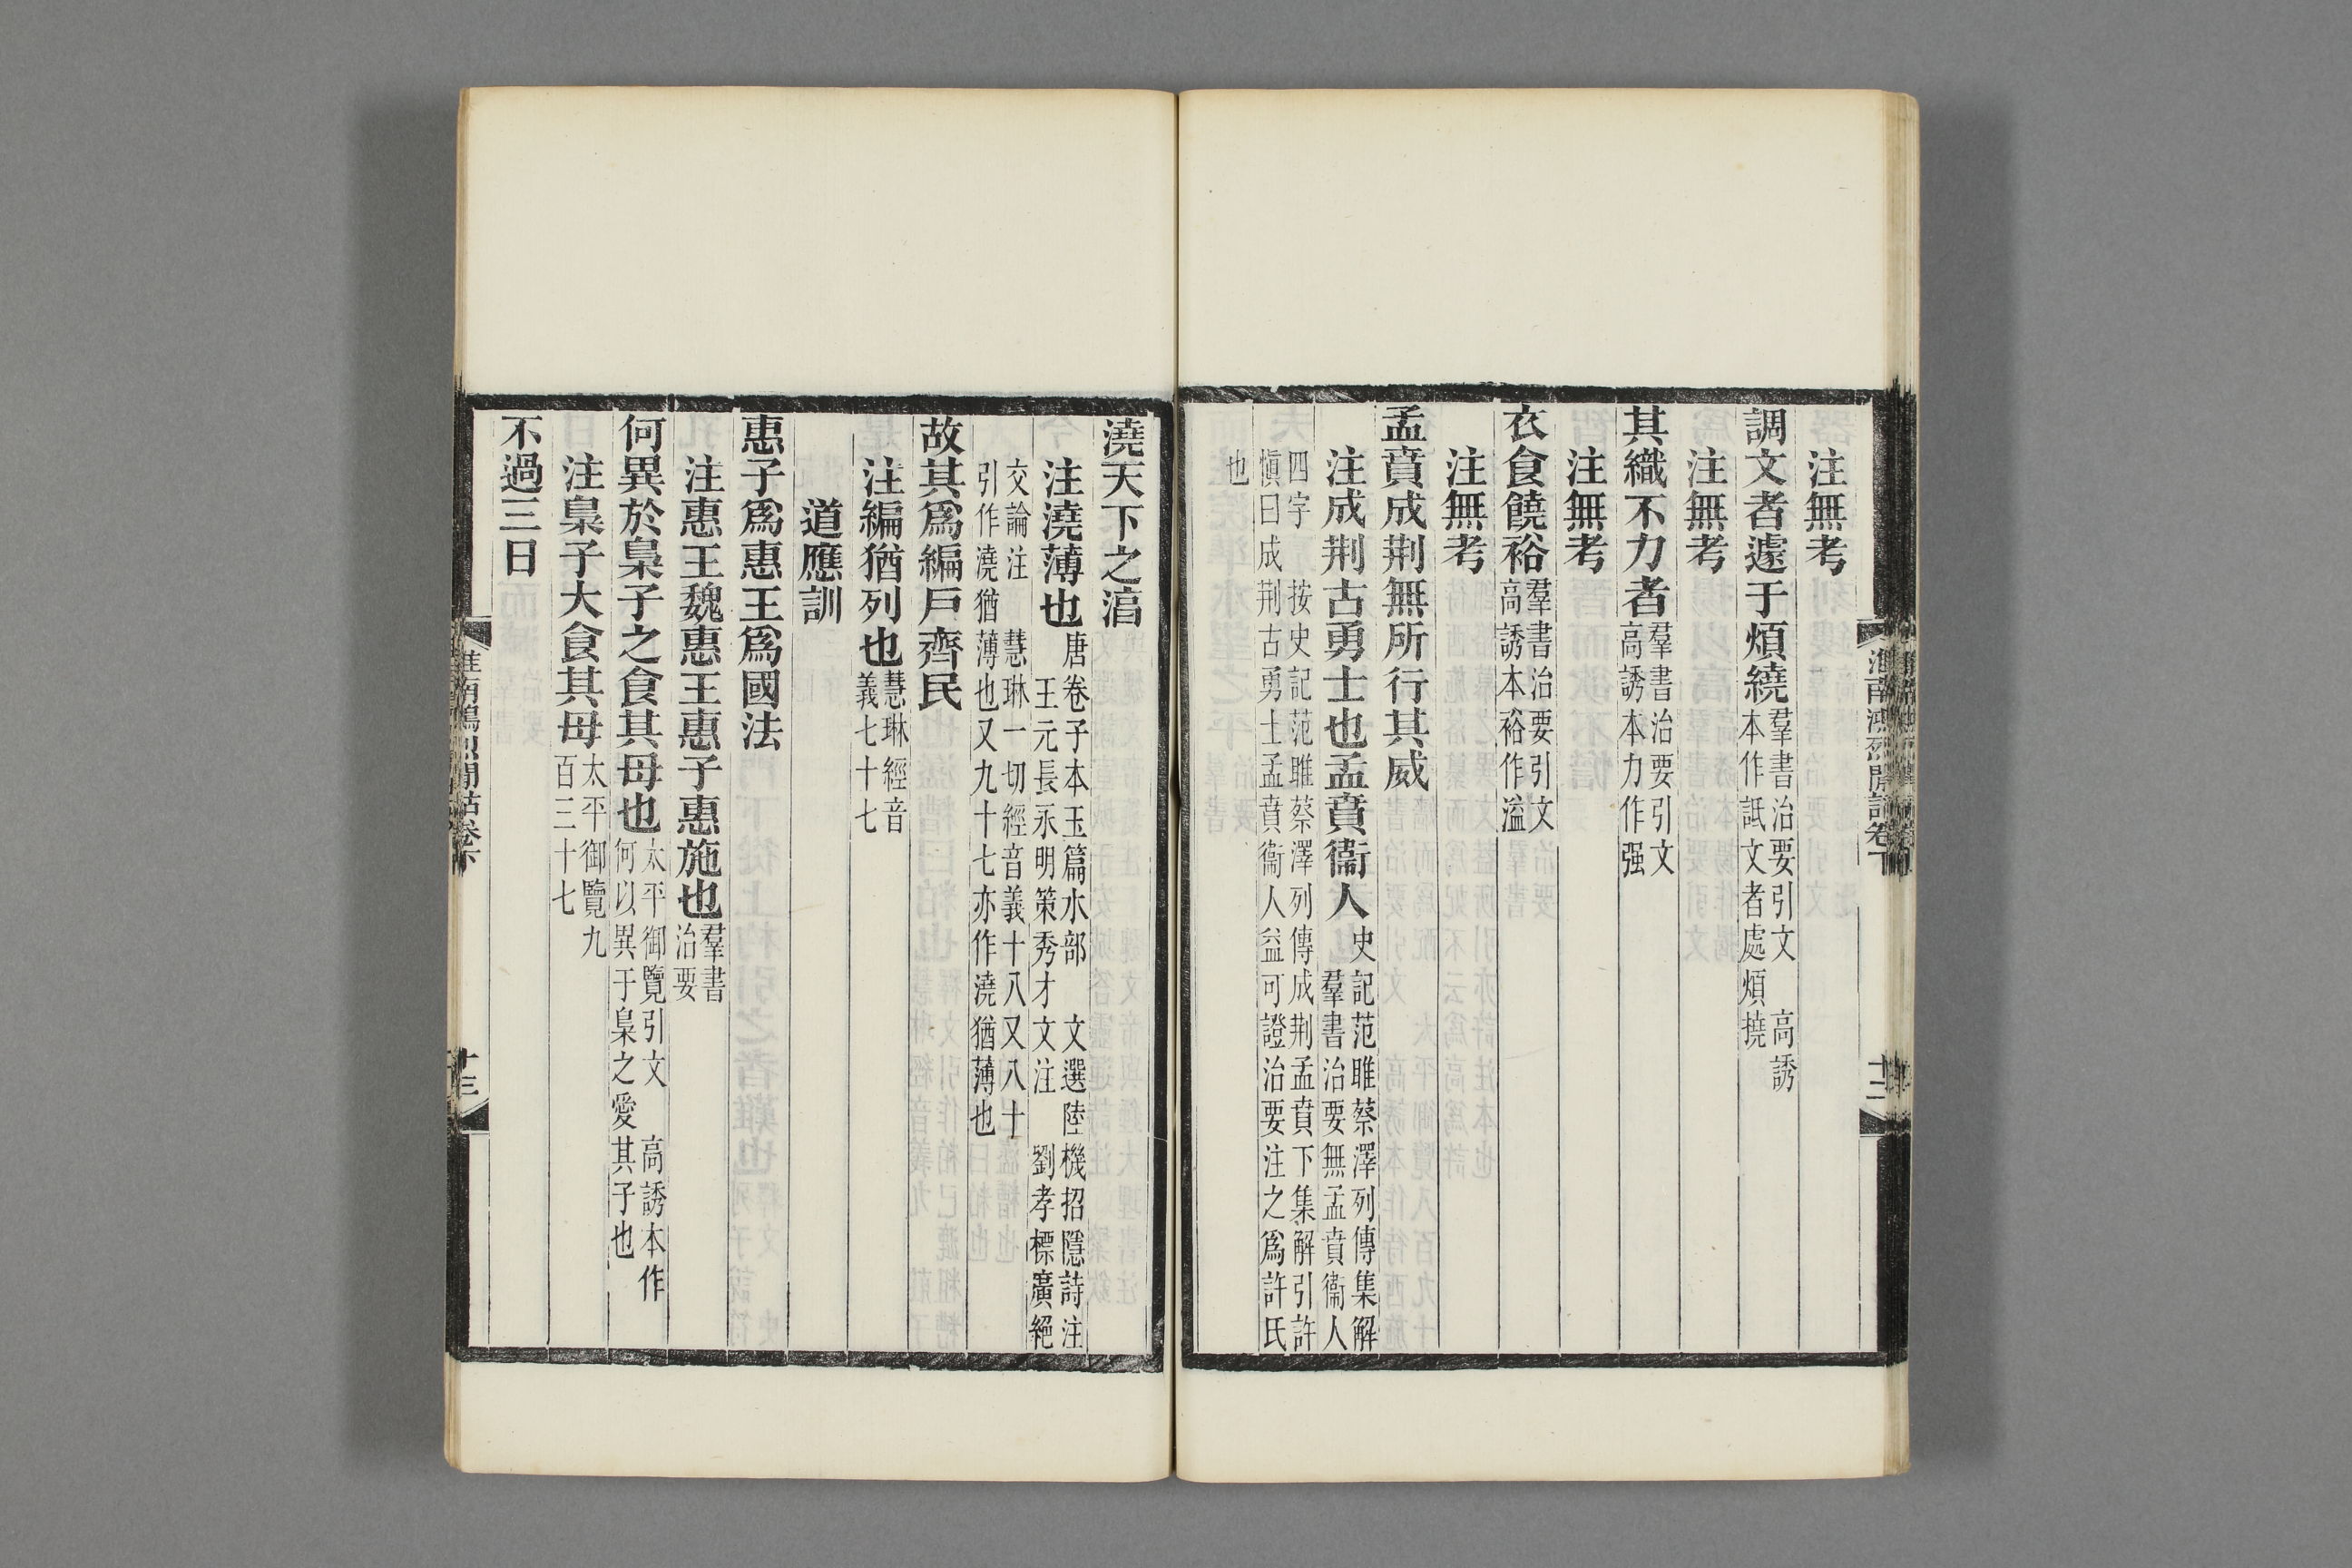 注無考
調文者遽于煩繞羣書治要引文 高誘本作詆文者處煩撓
注無考
其織不力者羣書治要引文高誘本力作强
注無考
衣食饒裕羣書治要引文高誘本裕作溢
注無考
孟賁成荆無所行其威
注成荆古勇士也孟賁衞人史記范雎蔡澤列傳集解羣書治要無孟賁衞人
四字 按史記范雎蔡澤列傳成荆孟賁下集解引許愼曰成荆古勇士孟賁衞人益可證治要注之爲許氏
也
淮南鴻烈閒詁卷下
十二
澆天下之湻
注澆薄也唐卷子本玉篇水部 文選陸機招隱詩注 王元長永明策秀才文注 劉孝標廣絕
交論注 慧琳一切經音義十八又八十引作澆猶薄也又九十七亦作澆猶薄也
故其爲編戸齊民
注編猶列也慧琳經音義七十七
道應訓
惠子爲惠王爲國法
注惠王魏惠王惠子惠施也羣書治要
何異於梟子之食其母也太平御覽引文 高誘本作何以異于梟之愛其子也
注梟子大食其母太平御覽九百三十七
不過三日
淮南鴻烈閒詁卷下
十三